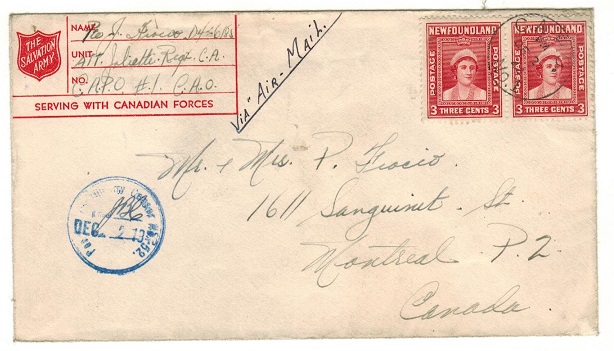 THE
SALVATION
ARMY
NAME Pte J. Fiocio
UNIT Att. Joliette Regt. C.A.
NO. C.A.P.O #1. C.A.O.
SERVING WITH CANADIAN FORCES
Via "Air-Mail.
NEWFOUNDLAND
POSTAGE POSTAGE
3 THREE CENTS 3
NEWFOUNDLAND
POSTAGE POSTAGE
3 THREE CENTS 3
Mr. & Mrs. P. Fiocio
1611 Sanguinet. St.
Montreal. P.Q.
Canada.
Censor
DEC 2 19